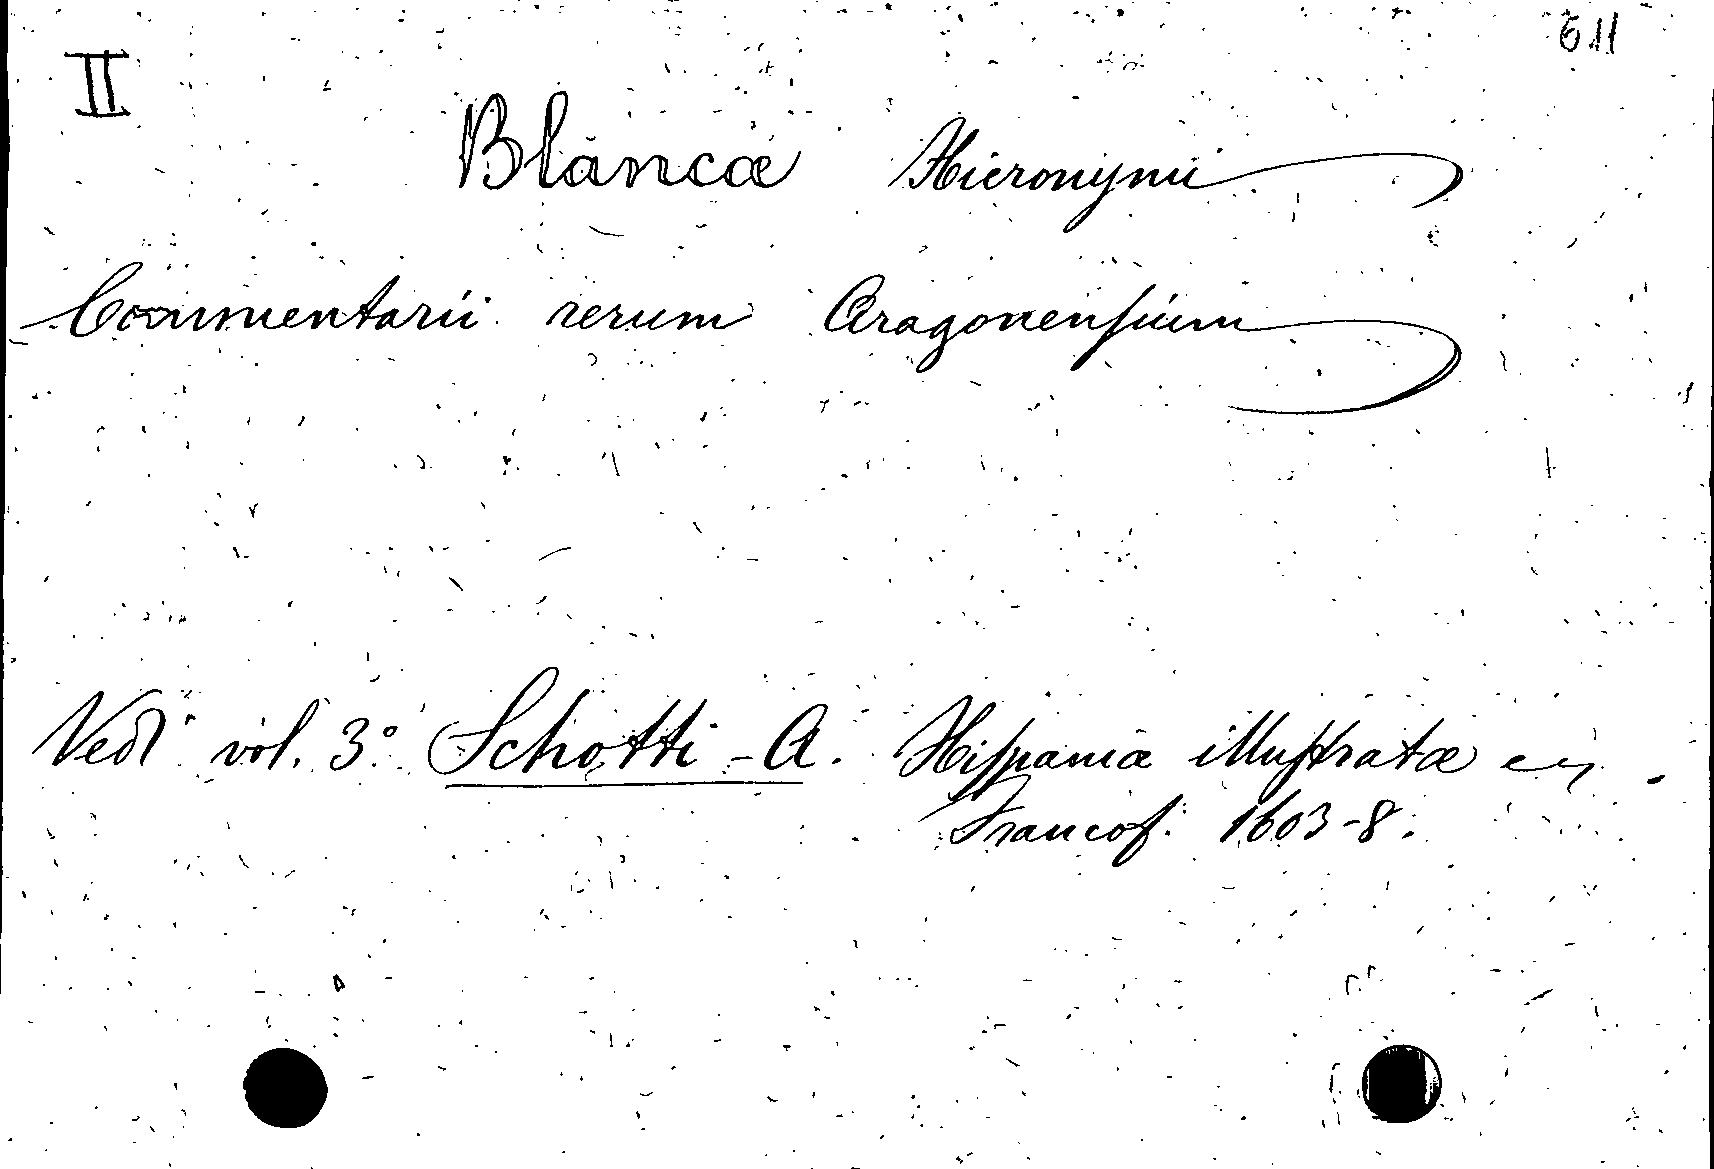 611
II
Blancæ Hieronymi
Commentarii rerum Aragonensium
Vedi vol. 3º Schotti - A. Hispaniæ illustratæ
Francof. 1603-8.